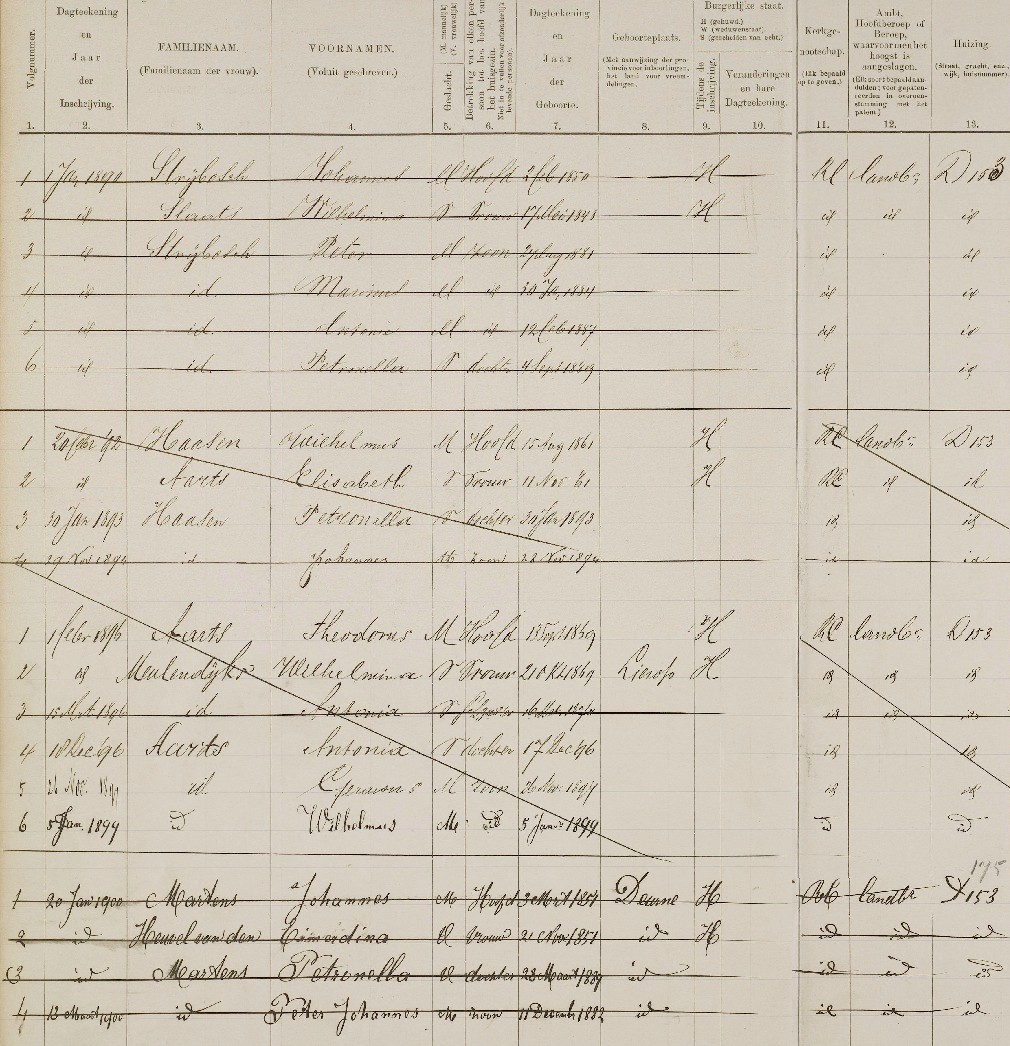 Volgnummer.
Dagteekening
en
Jaar
der
Inschrijving.
FAMILIENAAM.
(Familienaam der vrouw).
VOORNAMEN.
(Voluit geschreven.)
Geslacht. (M. mannelijk) (V. vrouwelijk).
Betrekking van elken persoon tot het hoofd van het huisgezin.
Dagteekening
en
Jaar
der
Geboorte.
Geboorteplaats.
(Met aanwijzing der provincie voor inboorlingen, het land voor vreemdelingen.
Burgerlijke staat.
H (gehuwd.)
W (weduwenstaat).
S (gescheiden van echt.)
Tijdens de inschrijving.
Veranderingen
en hare
Dagteekening.
Kerkgenootschap.
(Elk bepaald op te geven.)
Ambt,
Hoofdberoep of
Beroep,
waarvoor men het
hoogst is
aangeslagen.
Huizing.
(Straat, gracht, enz., wijk, huisnummer).
1. 2. 3. 4. 5. 6. 7. 8. 9. 10. 11. 12. 13.
1 1 Jan 1890 Strijbosch Johannes M Hoofd 2 feb 1850 H RC landbr D 153
2 id Slaats Wilhelmina V Vrouw 17 1848 H id id id
3 id Strijbosch Peter M zoon 1881 id id
4 id id. Marinus M id 30 Ja 1884 id id
5 id id. Antonie M id 12 feb 1887 id id
6 id id. Petronella V dochter 4 Sept 1889 id id
1 Haasen Wilhelmus M Hoofd 15 Aug 1861 H RC landbr D 153
2 id Aarts Elisabeth V Vrouw 11 Nov 61 H RC id id
3 30 Jan 1893 Haasen Petronella V dochter 30 Jan 1893 id id
4 29 Nov 1894 id Johannes M zoon 28 Nov 1894 id id
1 1 febr 1896 Aarts Theodorus M Hoofd 13 1869 H RC landbr D 153
2 id Meulendijks Wilhelmina V Vrouw 21 Okt 1869 Lierop H id id id
3 15 Mrt 1896 id Antonia V id id id
4 18 Dec 96 Aarts Antonia V dochter 17 Dec 96 id id
5 Nov. id. M zoon id id
6 5 Jan. 1899 id Wilhelmus M id 5 Jan 1899 id id
175
1 20 Jan 1900 Martens Johannes M Hoofd 3 Mrt 1851 Deurne H RC landbr D 153
2 id Heuvel van den V Vrouw 21 Nov 1851 id H id id id
3 id Martens Petronella V dochter 28 Maart 1889 id id id id
4 13 Maart 1900 id Peter Johannes M zoon 11 Decemb 1882 id id id id